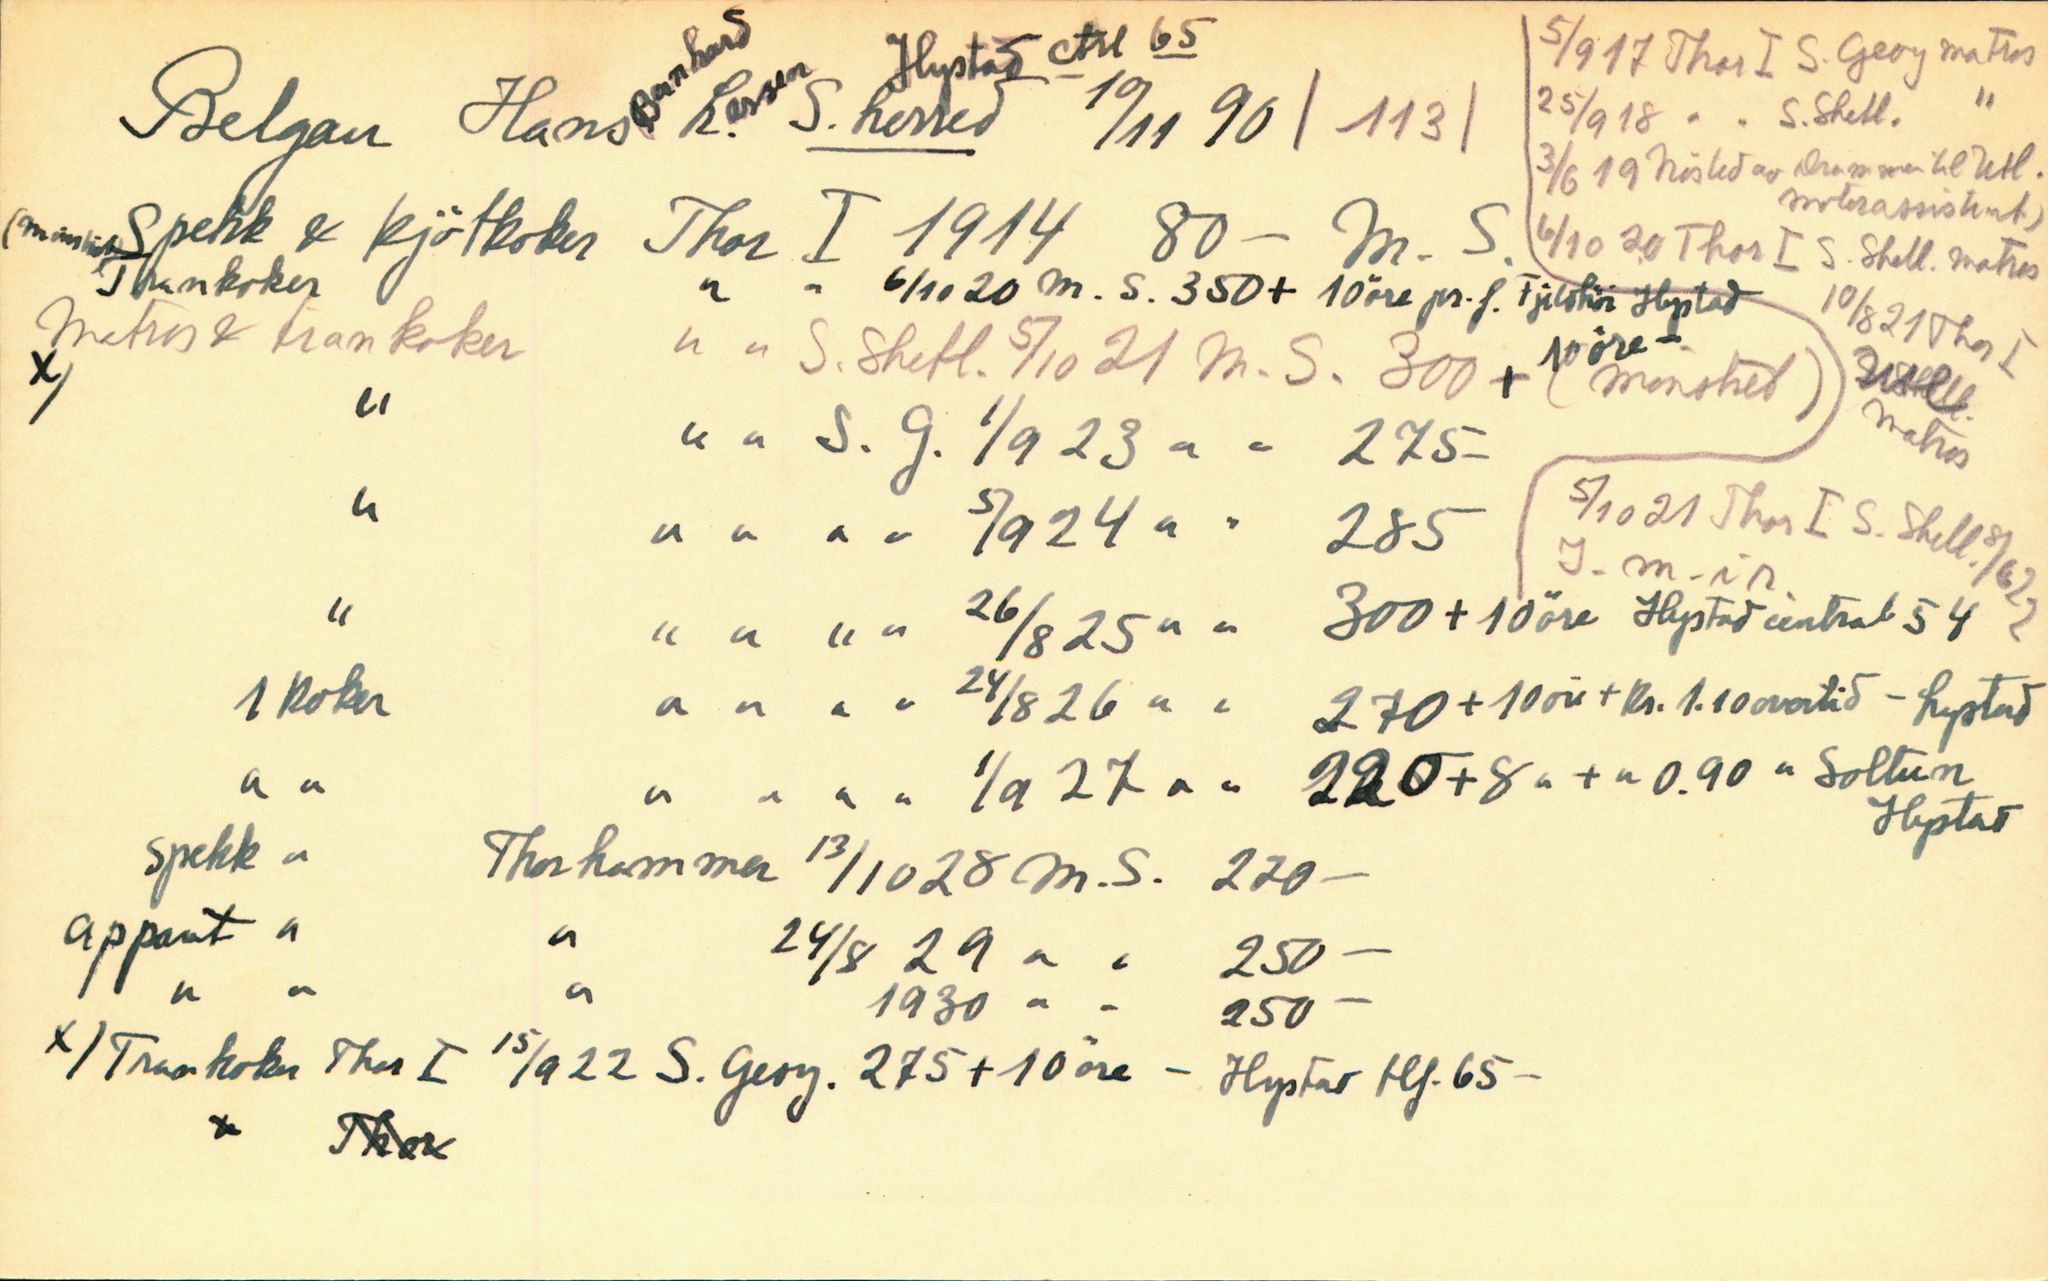 Belgau Hans Bernhard L. Larsen S. herred Hystad ctrl 65 19/11 90 | 113 |
Spekk & kjötkoker Thor I 1914 80 – M. S.
Trankoker " " 6/10 20 M. S. 350 + 10 öre pr. f. Hystad
Matros & trankoker " " S. Shetl. 5/10 21 M. S. 300 + 10 öre – (mönstret)
x/ " " " S. G. 1/9 23 " " 275 –
" " " " " 5/9 24 " " 285
" " " " " 26/8 25 " " 300 + 10 öre Hystad central 54
1 Koker " " " " 24/8 26 " " 270 + 10 öre + Kr. 1.10 overtid – Hystad
" " " " " " 1/9 27 " " 220 + 8 " + " 0.90 " Soltun
Hystad
Spekk " Thorhammer 13/10 28 M. S. 220 –
apparat " " 24/8 29 " " 250 –
" " " 1930 " " 250 –
x/ Trankoker Thor I 15/9 22 S. Georg. 275 + 10 öre – Hystad tlf. 65 –
x Thor
5/9 17 Thor I S. Georg matros
25/9 18 " " S. Shetl. "
3/6 19 av Drammen til Utl.
motorassistent
6/10 20 Thor I S. Shetl. matros
10/8 21 Thor I
matros
5/10 21 Thor I S. Shetl. 8/6 22
J. m. i r.